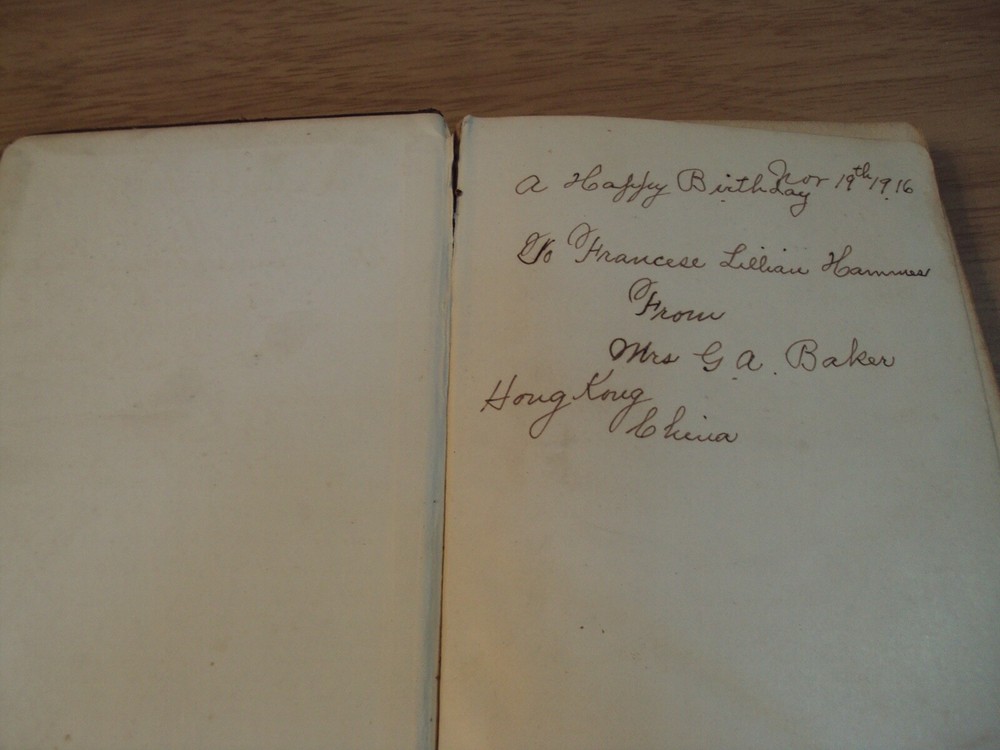 A Happy Birthday Nov 19th 1916
To Francese Lillian Hammes
From
Mrs G A. Baker
Hong Kong
China